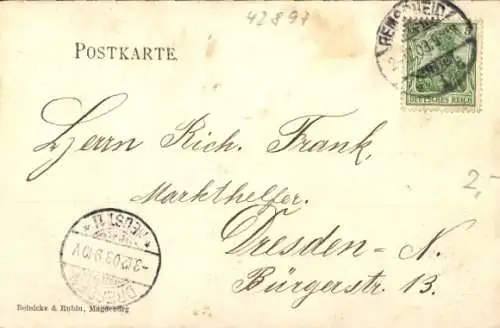 42897
POSTKARTE.
REMSCHEID
DEUTSCHES REICH
Herrn Rich. Frank,
Markthelfer.
2,-
Dresden - N.
Bürgerstr. 13.
NEUST. 11
3.12.03.9-10V
DRESDEN
Reinicke & Rubin, Magdeburg